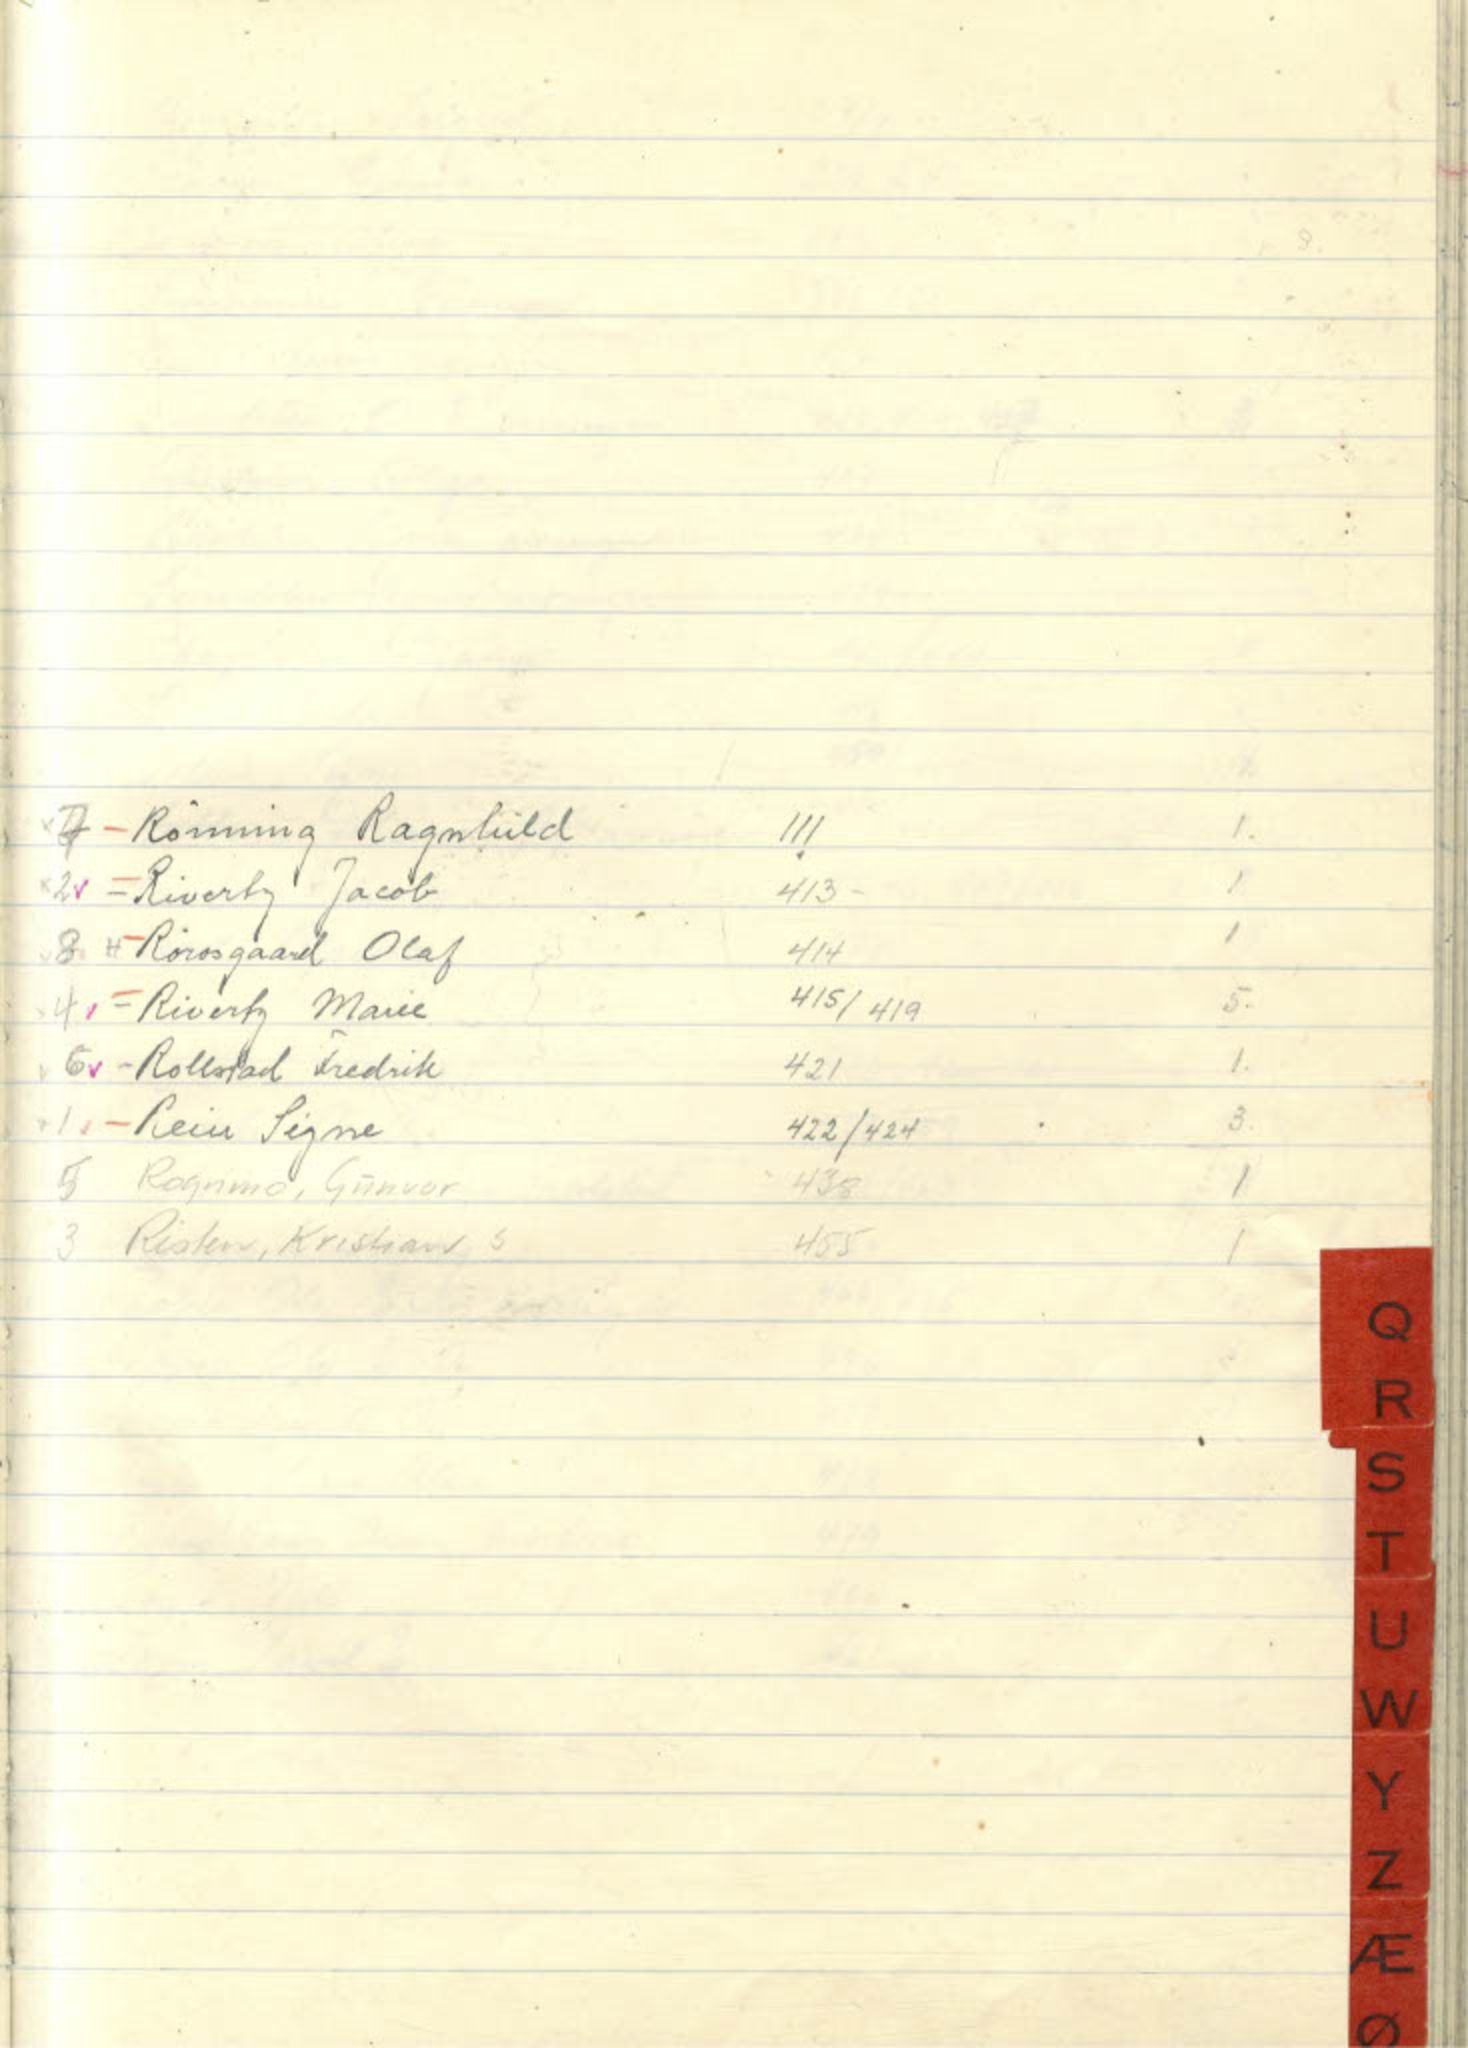 x 7 - Rönning Ragnhild 111 1.
x 2 v = Rivertz Jacob 413 - 1
8 # Rörosgaard Olaf 414 1
4 v = Rivertz Marie 415/419 5.
6 v - Rollstad Fredrik 421 1.
1 - Rein Signe 422/424 3.
5 Rognmo, Gunvor 438 1
3 Risten, Kristian S 455 1
Q
R
S
T
U
W
Y
Z
Æ
Ø